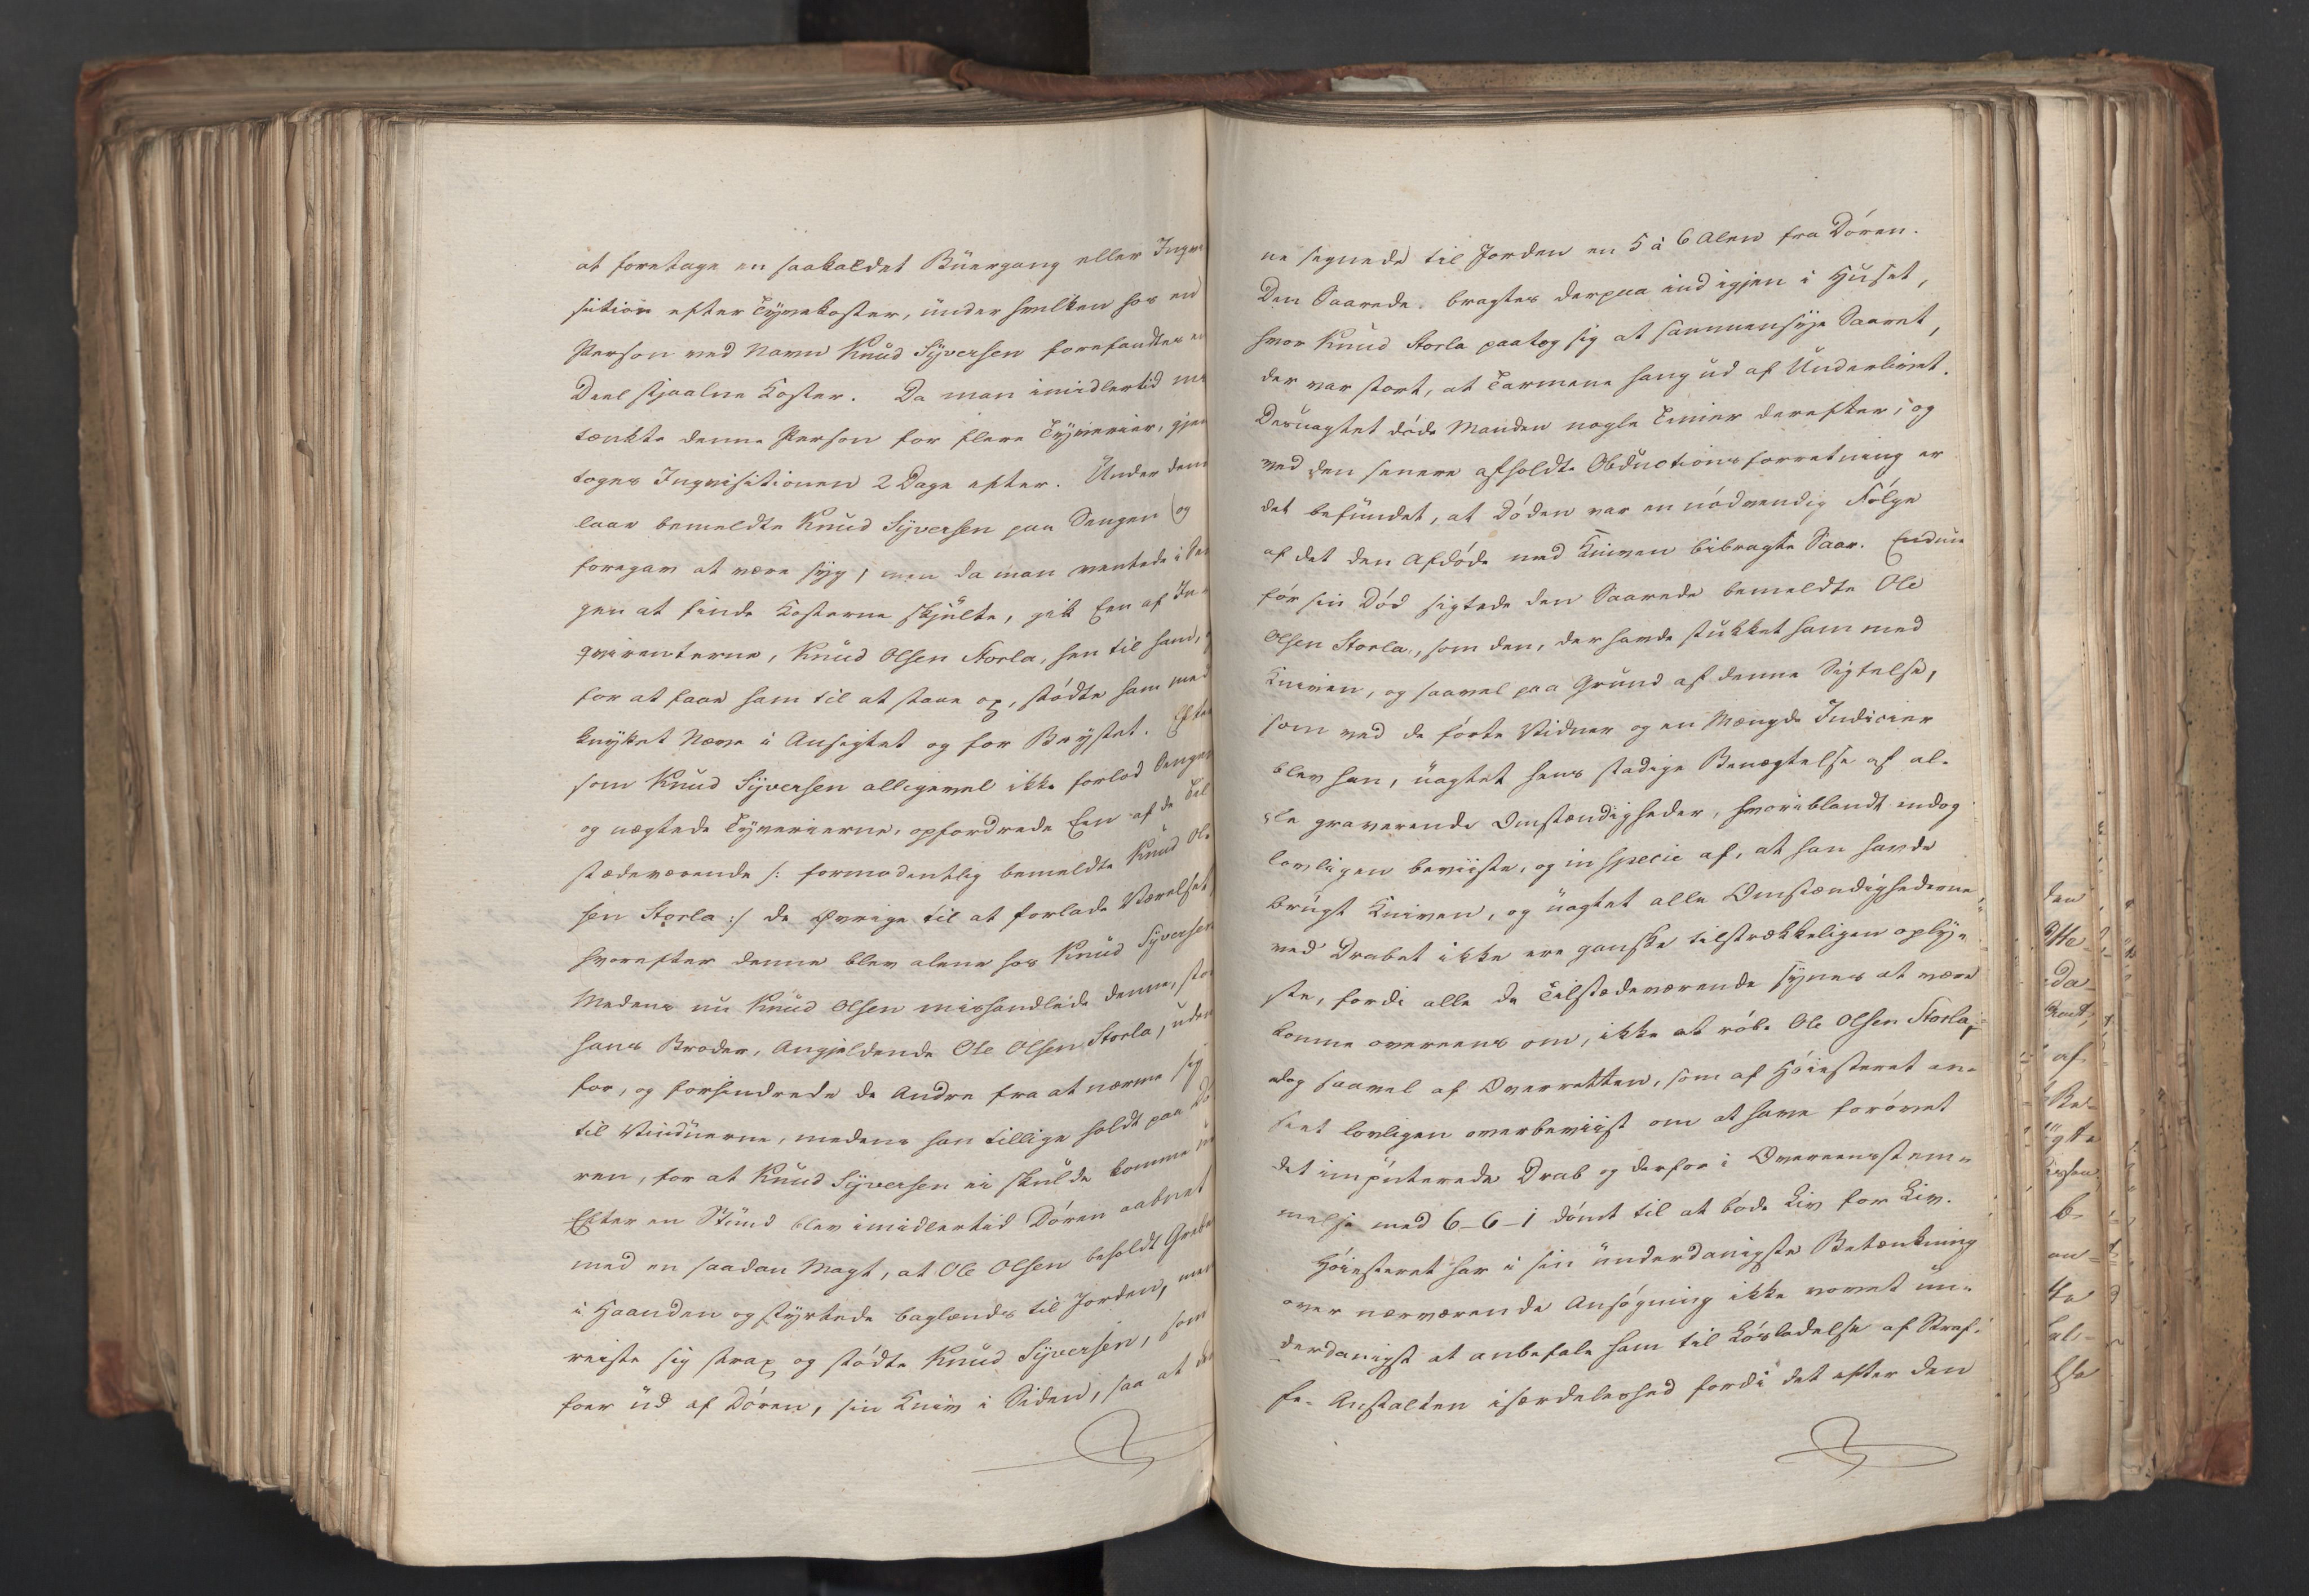 at foretage en saakaldet Buergang eller Inqvi
sition efter Tyvekoster, under hvilken hos en
Person ved Navn Knud Syversen forefandtes en
Deel stjaalne Koster. Da man imidlertid mis
tænkte denne Person for flere Tyverier, gjen
toges Inqvisitionen 2 Dage efter. Under denne
laae bemeldte Knud Syversen paa Sengen (og
foregav at være syg) men da man ventede i Sen
gen at finde Kosterne skjulte, gik Een af In-
qvirenterne, Knud Olsen Storla, hen til ham,
for at faae ham til at staae op, stødte ham med
knyttet Næve i Ansigtet og for Brystet. Efter
som Knud Syversen alligevel ikke forlod Sengen
og nægtede Tyverierne, opfordrede Een af de Til
stædeværende /: formodentlig bemeldte Knud Ol
sen Storla :/ de øvrige til at forlade Værelset,
hvorefter denne blev alene hos Knud Syversen
Medens nu Knud Olsen mishandlede denne, stod
hans Broder, Angjeldende Ole Olsen Storla, uden
for, og forhindrede de Andre fra at nærme sig
til Vinduerne, medens han tillige holdt paa Dø
ren, for at Knud Syversen ei skulde komme ud
Efter en Stund blev imidlertid Døren aabnet
med en saadan Magt, at Ole Olsen beholdt Grebet
i Haanden og styrtede baglænds til Jorden, men
reiste sig strax og stødte Knud Syversen, som
foer ud af Døren, sin Kniv i Siden, saa at den
ne segnede til Jorden en 5 à 6 Alen fra Døren.
Den Saarede bragtes derpaa ind igjen i Huset,
hvor Knud Storla paatog sig at sammensye Saaret,
der var stort, at Tarmene hang ud af Underlivet.
Desuagtet døde Manden nogle Timer derefter; og
ved den senere afholdte Obductionsforretning er
det befundet, at Døden var en nødvendig Følge
af det den Afdøde med Kniven bibragte Saar. Endnu
før sin Død sigtede den Saarede bemeldte Ole
Olsen Storla, som den, der havde stukket ham med
Kniven, og saavel paa Grund af denne Sigtelse,
som ved de førte Vidner og en Mængde Indicier
blev han, uagtet hans stadige Benægtelse af al-
le graverende Omstændigheder, hvoriblandt endog
lovligen beviiste, og in specie af, at han havde
brugt Kniven, og uagtet alle Omstændighederne
ved Drabet ikke ere ganske tilstrækkeligen oply-
ste, fordi alle de Tilstædeværende synes at være
komne overeens om, ikke at røbe Ole Olsen Storla,
dog saavel af Overretten, som af Høiesteret an-
seet lovligen overbeviist om at have forøvet
det imputerede Drab og derfor i Overeensstem-
melse med 6-6-1 dømt til at bøde Liv for Liv.
Høiesteret har i sin underdanigste Betænkning
over nærværende Ansøgning ikke vovet un-
derdanigst at anbefale ham til Løsladelse af Straf-
fe-Anstalten isærdeleshed fordi det efter den